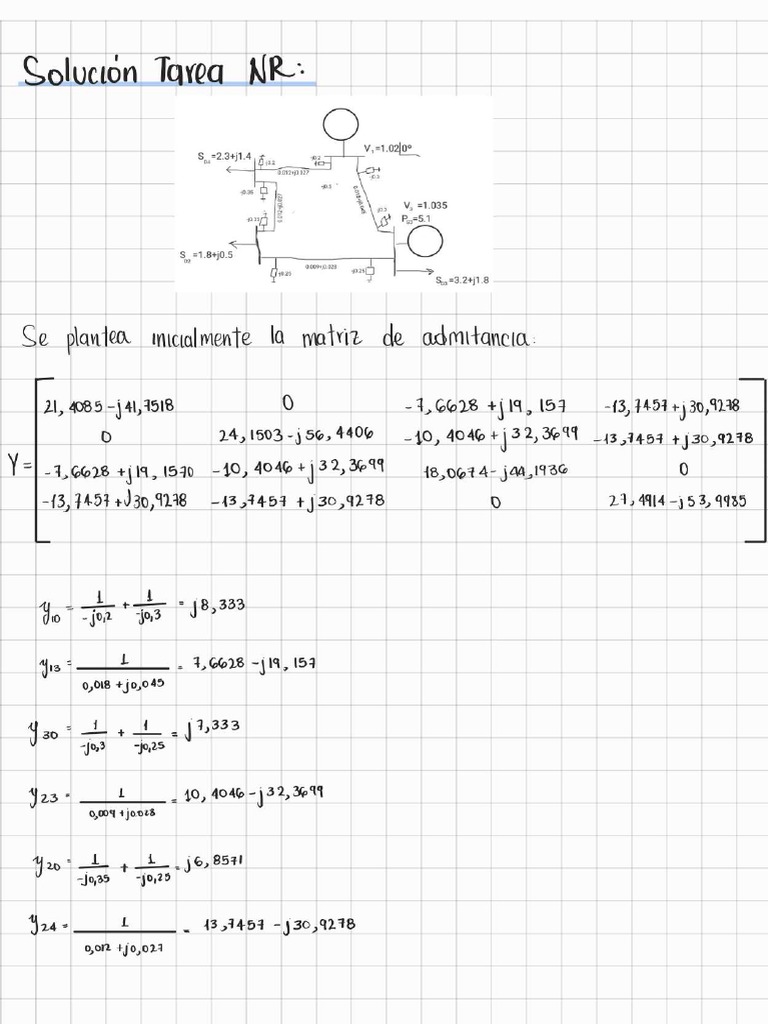 Solución Tarea NR:
V₁=1.02|0°
S_D4=2.3+j1.4
-j0.2
0.012+j0.027
V₃=1.035
P_G3=5.1
S_D2=1.8+j0.5
0.009+j0.028
S_D3=3.2+j1.8
Se plantea inicialmente la matriz de admitancia:
21,4085-j41,7518 0 -7,6628+j19,157 -13,7457+j30,9278
0 24,1503-j56,4406 -10,4046+j32,3699 -13,7457+j30,9278
Y=
-7,6628+j19,1570 -10,4046+j32,3699 18,0674-j44,1936 0
-13,7457+j30,9278 -13,7457+j30,9278 0 27,4914-j53,9985
y₁₀ = 1/-j0,2 + 1/-j0,3 = j8,333
y₁₃ = 1/0,018+j0,045 = 7,6628-j19,157
y₃₀ = 1/-j0,3 + 1/-j0,25 = j7,333
y₂₃ = 1/0,009+j0.028 = 10,4046-j32,3699
y₂₀ = 1/-j0,35 + 1/-j0,25 = j6,8571
y₂₄ = 1/0,012+j0,027 = 13,7457-j30,9278